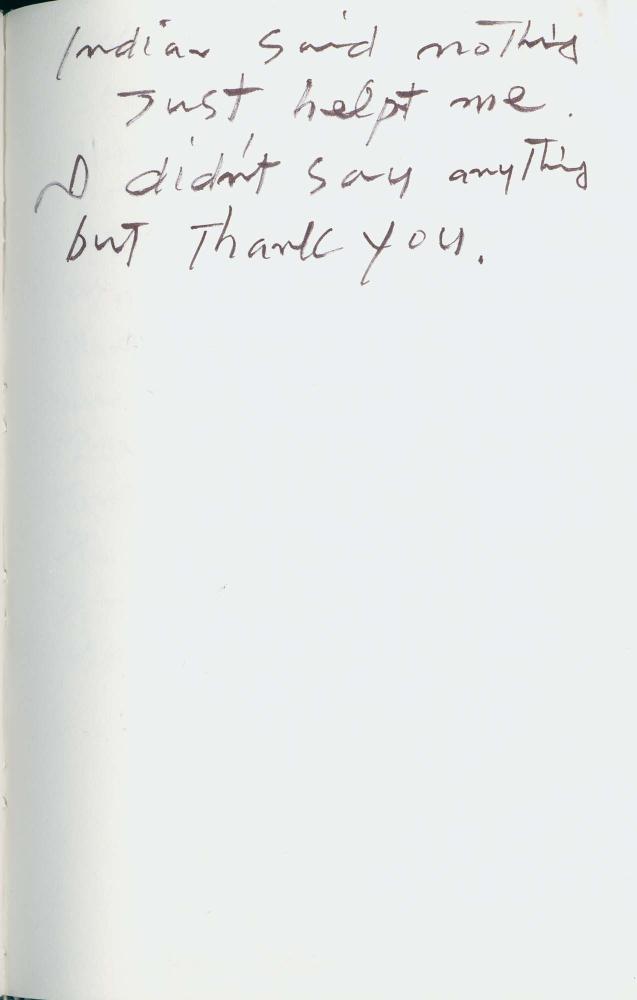 Indian said nothing
Just helpt me.
I didn't say anything
but Thank you.